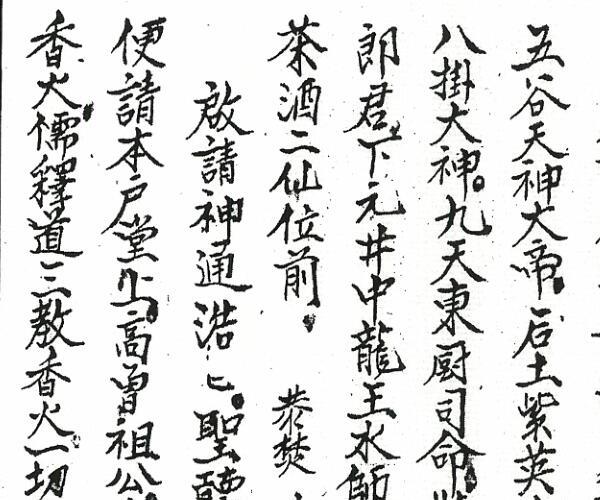 五谷天神大帝。后土紫英
八掛大神。九天東厨司命
郎君。下元井中龍王水
茶酒二仙位前。 恭焚
啟請神通浩匕。聖
便請本户堂上。高曽祖公
香火。儒釋道三教香火一切